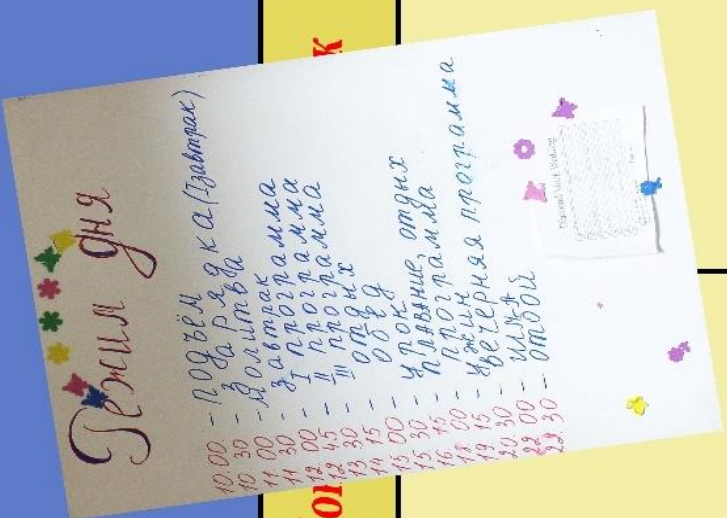 Режим дня
10.00 - подъём
10 30 - Зарядка (I завтрак)
11 00 - Молитва
11 30 - Завтрак
12 00 - I программа
12 45 - II программа
13 30 - III программа
14 15 - отдых
15 00 - обед
15 30 - урок
16 15 - плавание, отдых
18 00 - программа
19 15 - ужин
20 30 - вечерняя программа
22 00 -
22 30 - отбой